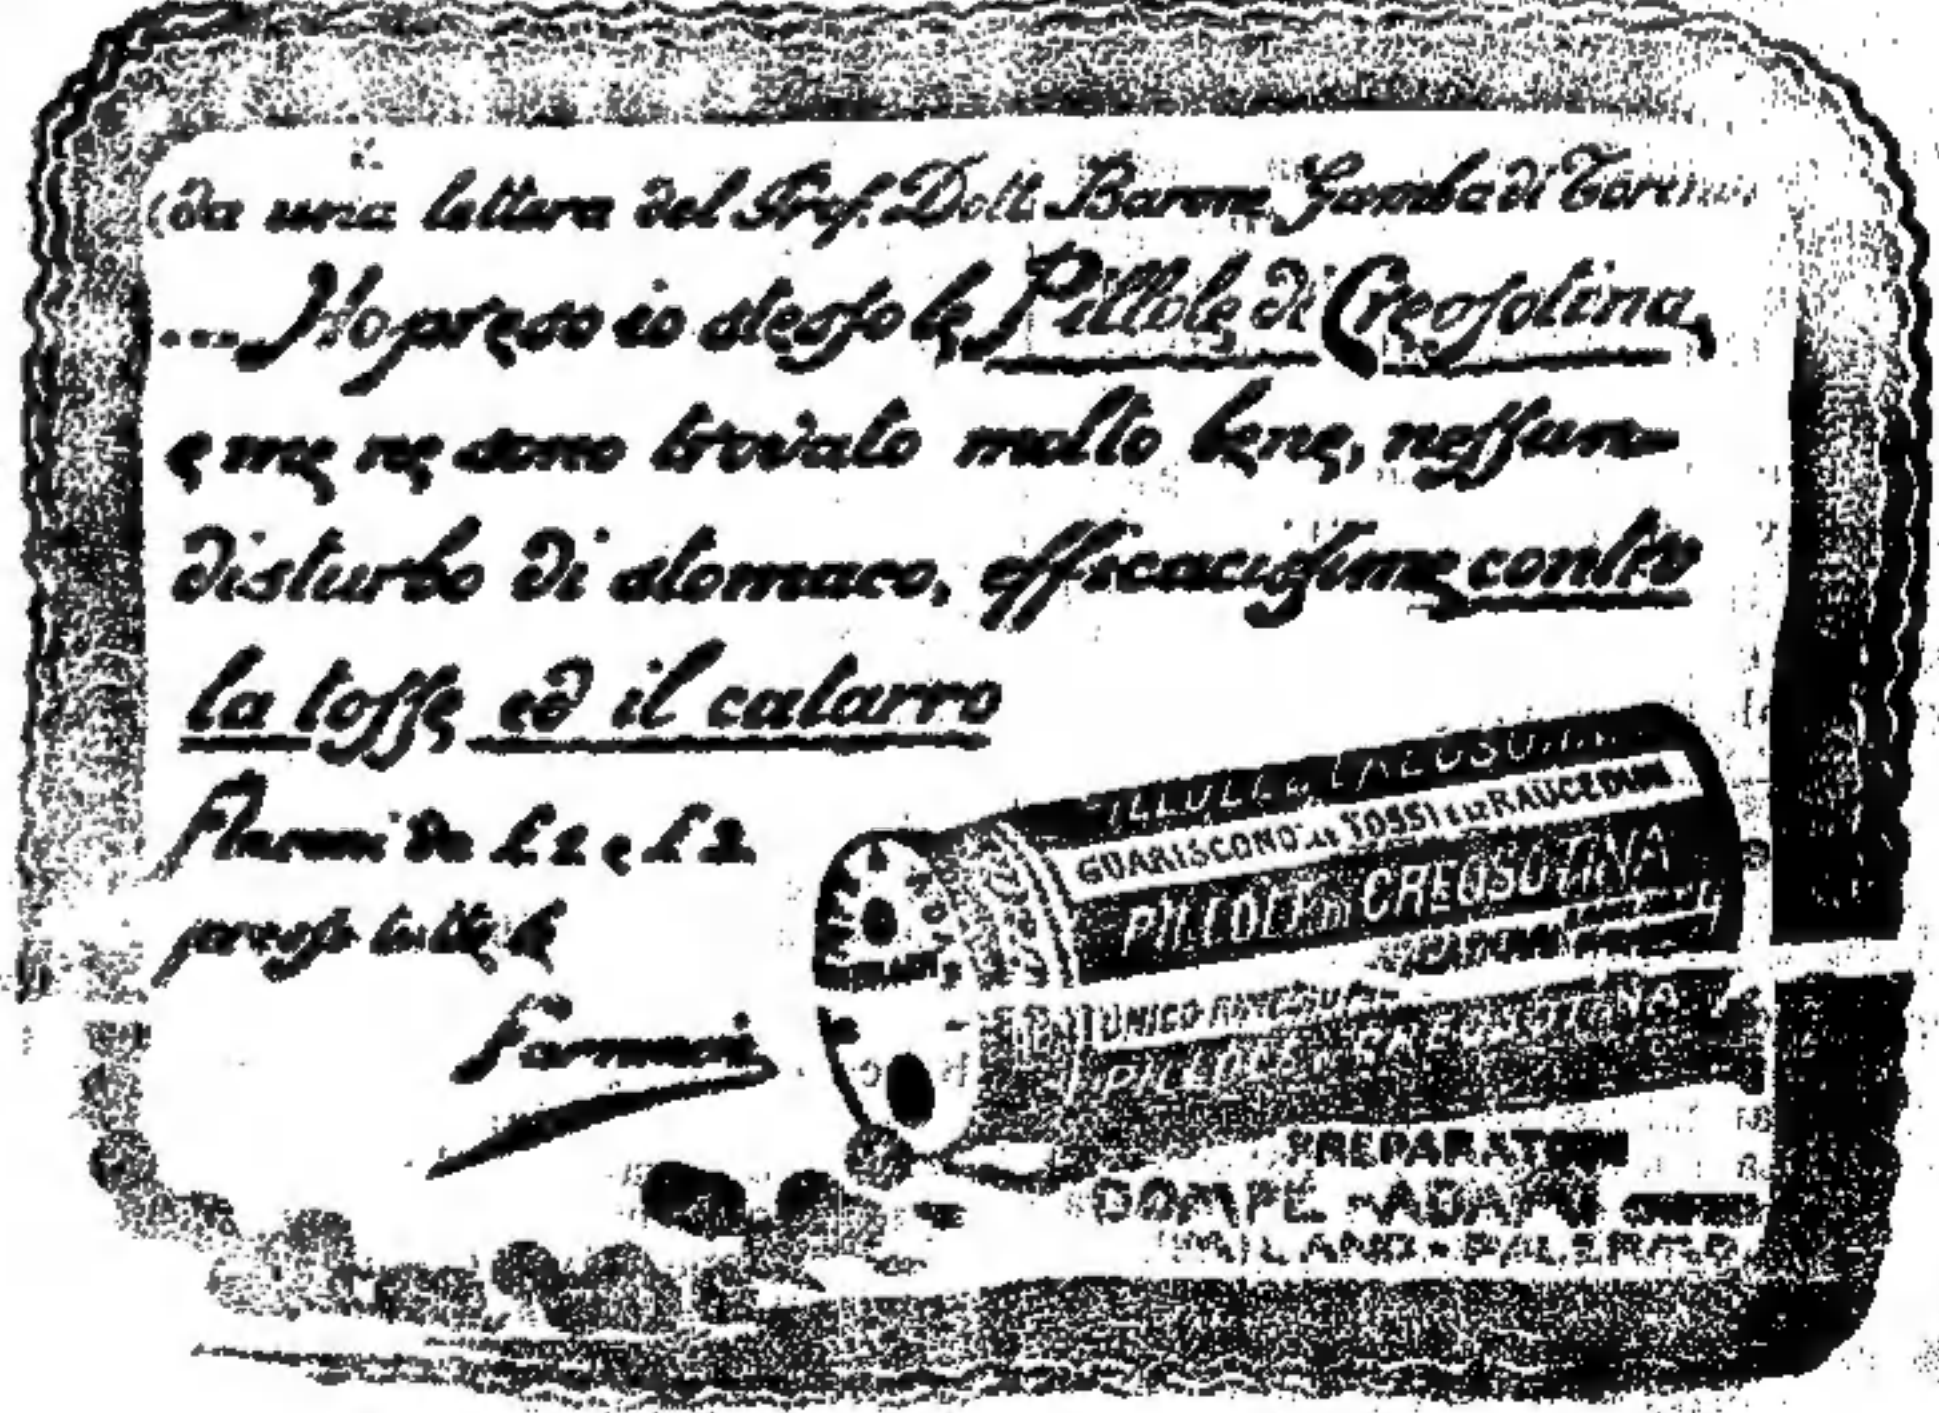 (da una lettera del Prof. Dott. Barone Gamba di Torino)
.... Ho preso io stesso le Pillole di Creosotina,
e me ne sono trovato molto bene, nessun
disturbo di stomaco, efficacissime contro
la tosse ed il catarro
Flaconi da L 1 e L 2
presso tutte le
Farmacie
PILLOLE DI CREOSOTINA
GUARISCONO LE TOSSI E LE RAUCEDINI
PILLOLE DI CREOSOTINA
UNICO
PILLOLE DI CREOSOTINA
PREPARATORI
DOMPÉ-ADAMI
MILANO - PALERMO